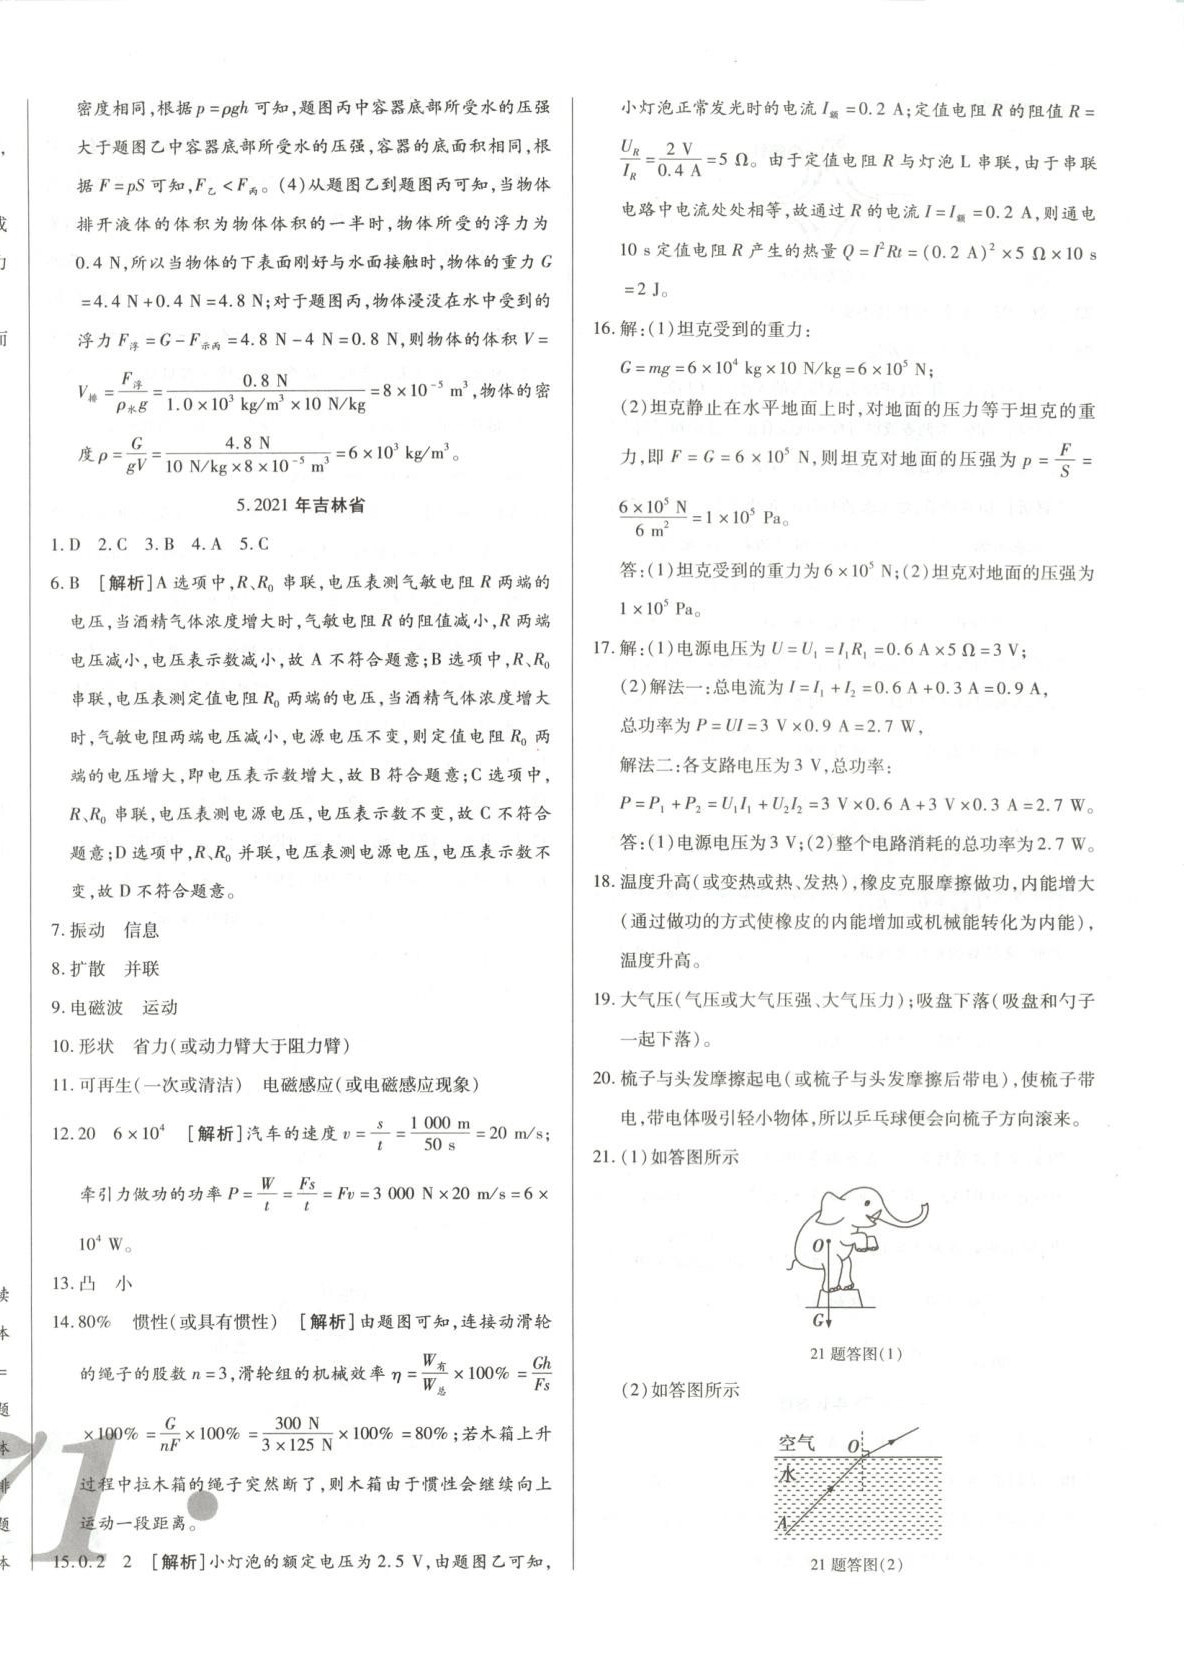 密度相同,根据p=ρgh可知,题图丙中容器底部所受水的压强
大于题图乙中容器底部所受水的压强,容器的底面积相同,根
据F=pS可知,F乙<F丙。(4)从题图乙到题图丙可知,当物体
排开液体的体积为物体体积的一半时,物体所受的浮力为
0.4 N,所以当物体的下表面刚好与水面接触时,物体的重力G
=4.4 N+0.4 N=4.8 N;对于题图丙,物体浸没在水中受到的
浮力F浮=G-F示丙=4.8 N-4 N=0.8 N,则物体的体积V=
V排=F浮/ρ水g=0.8 N/(1.0×10³ kg/m³×10 N/kg)=8×10⁻⁵ m³,物体的密
度ρ=G/gV=4.8 N/(10 N/kg×8×10⁻⁵ m³)=6×10³ kg/m³。
5.2021年吉林省
1.D 2.C 3.B 4.A 5.C
6.B [解析]A选项中,R、R₀串联,电压表测气敏电阻R两端的
电压,当酒精气体浓度增大时,气敏电阻R的阻值减小,R两端
电压减小,电压表示数减小,故A不符合题意;B选项中,R、R₀
串联,电压表测定值电阻R₀两端的电压,当酒精气体浓度增大
时,气敏电阻两端电压减小,电源电压不变,则定值电阻R₀两
端的电压增大,即电压表示数增大,故B符合题意;C选项中,
R、R₀串联,电压表测电源电压,电压表示数不变,故C不符合
题意;D选项中,R、R₀并联,电压表测电源电压,电压表示数不
变,故D不符合题意。
7.振动 信息
8.扩散 并联
9.电磁波 运动
10.形状 省力(或动力臂大于阻力臂)
11.可再生(一次或清洁) 电磁感应(或电磁感应现象)
12.20 6×10⁴ [解析]汽车的速度v=s/t=1 000 m/50 s=20 m/s;
牵引力做功的功率P=W/t=Fs/t=Fv=3 000 N×20 m/s=6×
10⁴ W。
13.凸 小
14.80% 惯性(或具有惯性) [解析]由题图可知,连接动滑轮
的绳子的股数n=3,滑轮组的机械效率η=W有/W总×100%=Gh/Fs
×100%=G/nF×100%=300 N/(3×125 N)×100%=80%;若木箱上升
过程中拉木箱的绳子突然断了,则木箱由于惯性会继续向上
运动一段距离。
15.0.2 2 [解析]小灯泡的额定电压为2.5 V,由题图乙可知,
71
小灯泡正常发光时的电流I额=0.2 A;定值电阻R的阻值R=
U_R/I_R=2 V/0.4 A=5 Ω。由于定值电阻R与灯泡L串联,由于串联
电路中电流处处相等,故通过R的电流I=I额=0.2 A,则通电
10 s定值电阻R产生的热量Q=I²Rt=(0.2 A)²×5 Ω×10 s
=2 J。
16.解:(1)坦克受到的重力:
G=mg=6×10⁴ kg×10 N/kg=6×10⁵ N;
(2)坦克静止在水平地面上时,对地面的压力等于坦克的重
力,即F=G=6×10⁵ N,则坦克对地面的压强为p=F/S=
6×10⁵ N/6 m²=1×10⁵ Pa。
答:(1)坦克受到的重力为6×10⁵ N;(2)坦克对地面的压强为
1×10⁵ Pa。
17.解:(1)电源电压为U=U₁=I₁R₁=0.6 A×5 Ω=3 V;
(2)解法一:总电流为I=I₁+I₂=0.6 A+0.3 A=0.9 A,
总功率为P=UI=3 V×0.9 A=2.7 W,
解法二:各支路电压为3 V,总功率:
P=P₁+P₂=U₁I₁+U₂I₂=3 V×0.6 A+3 V×0.3 A=2.7 W。
答:(1)电源电压为3 V;(2)整个电路消耗的总功率为2.7 W。
18.温度升高(或变热或热、发热),橡皮克服摩擦做功,内能增大
(通过做功的方式使橡皮的内能增加或机械能转化为内能),
温度升高。
19.大气压(气压或大气压强、大气压力);吸盘下落(吸盘和勺子
一起下落)。
20.梳子与头发摩擦起电(或梳子与头发摩擦后带电),使梳子带
电,带电体吸引轻小物体,所以乒乓球便会向梳子方向滚来。
21.(1)如答图所示
O
G
21题答图(1)
(2)如答图所示
空气 O
水
A
21题答图(2)